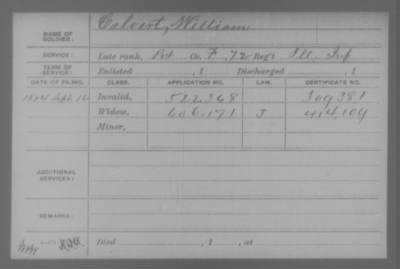 NAME OF SOLDIER: Calvert, William
SERVICE: Late rank, Pvt Co. F, 72 Reg't Ill. Inf
TERM OF SERVICE: Enlisted , 1 Discharged , 1
DATE OF FILING. CLASS. APPLICATION NO. LAW. CERTIFICATE NO.
1884 Sept. Invalid, 522.368 309381
Widow, 606.171 J 414.109
Minor,
ADDITIONAL SERVICES:
REMARKS:
Died , 1 , at